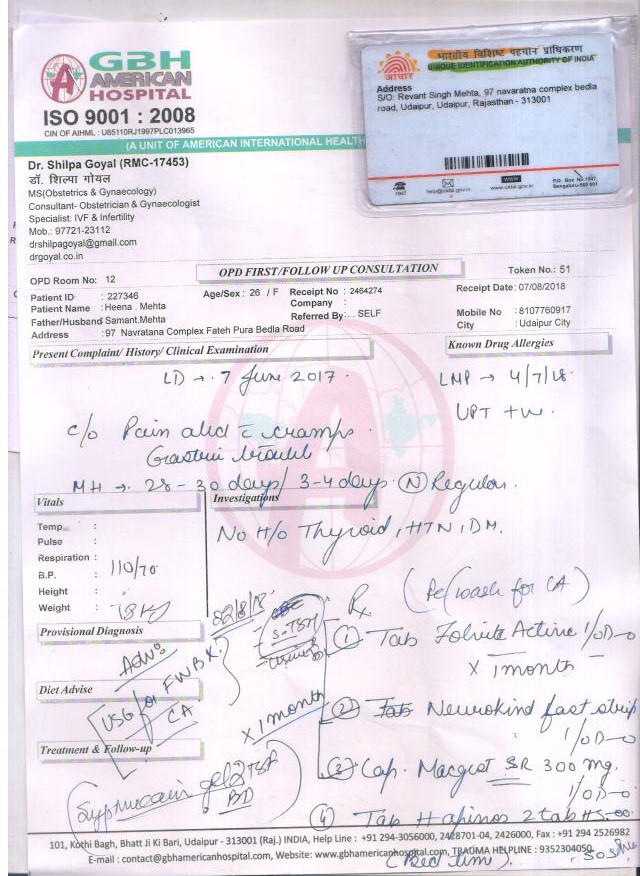 GBH
AMERICAN
HOSPITAL
ISO 9001 : 2008
CIN OF AIHML : U85110RJ1997PLC013965
(A UNIT OF AMERICAN INTERNATIONAL HEALTH
भारतीय विशिष्ट पहचान प्राधिकरण
UNIQUE IDENTIFICATION AUTHORITY OF INDIA
आधार
Address
S/O: Revant Singh Mehta, 97 navaratna complex bedla
road, Udaipur, Udaipur, Rajasthan - 313001
1947
help@uidai.gov.in
www
www.uidai.gov.in
P.O. Box No.1947,
Bengaluru-560 001
Dr. Shilpa Goyal (RMC-17453)
डॉ. शिल्पा गोयल
MS(Obstetrics & Gynaecology)
Consultant- Obstetrician & Gynaecologist
Specialist: IVF & Infertility
Mob.: 97721-23112
drshilpagoyal@gmail.com
drgoyal.co.in
OPD Room No: 12
OPD FIRST/FOLLOW UP CONSULTATION
Token No.: 51
Patient ID : 227346
Age/Sex : 26 / F
Receipt No : 2464274
Receipt Date: 07/08/2018
Patient Name : Heena . Mehta
Company :
Father/Husband Samant.Mehta
Referred By: . SELF
Mobile No : 8107760917
Address : 97 Navratana Complex Fateh Pura Bedla Road
City : Udaipur City
Present Complaint/ History/ Clinical Examination
Known Drug Allergies
LD → 7 June 2017.
LMP → 4/7/18
UPT +ve.
c/o Pain abd c cramps.
Gastric trouble
MH → 28-30 days/ 3-4 days. (N) Regular.
Vitals
Investigations
Temp. :
Pulse :
Respiration :
B.P. : 110/70
Height :
Weight :
No H/o Thyroid, HTN, DM.
Provisional Diagnosis
Rx
S-TSH
(1) Tab Folvite Active 1/OD
x 1 months
Adv:
USG for FWBX
CA
Diet Advise
x 1 month
(2) Tab Neurokind fast strip
1/OD
Treatment & Follow-up
(3) Cap. Macgest SR 300 mg.
1/OD
gel 2 TSF
BD
(4) Tab 2 tab HS
(Bed time).
SOS
101, Kothi Bagh, Bhatt Ji Ki Bari, Udaipur - 313001 (Raj.) INDIA, Help Line : +91 294-3056000, 2428701-04, 2426000, Fax : +91 294 2526982
E-mail : contact@gbhamericanhospital.com, Website: www.gbhamericanhospital.com, TRAUMA HELPLINE : 9352304050